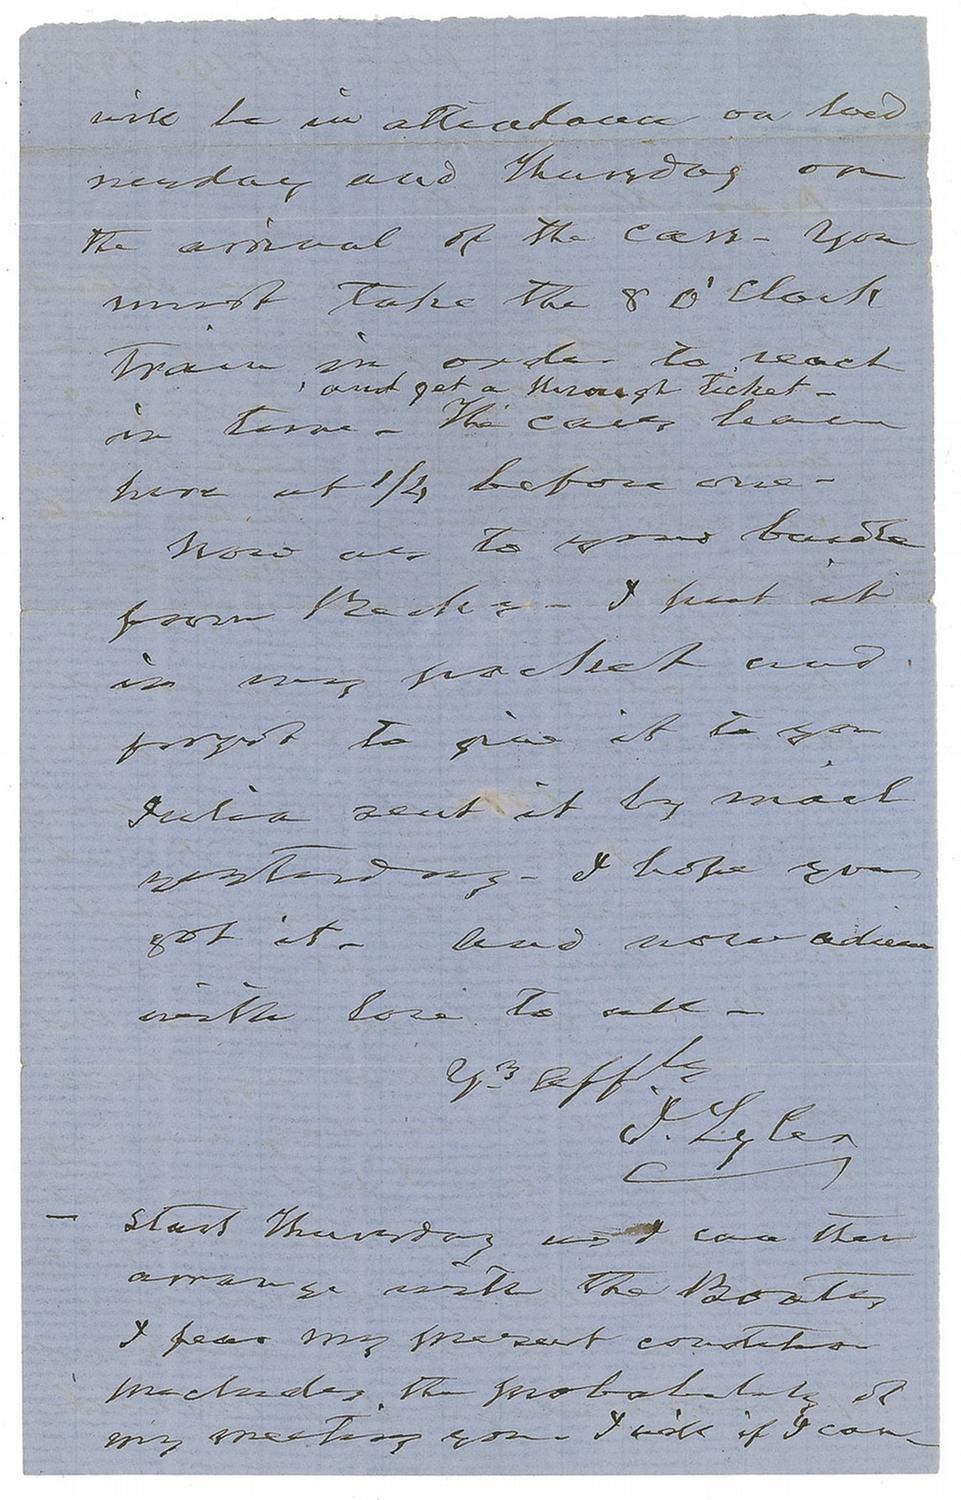 will be in attendance on wed
nesday and Thursday on
the arrival of the cars - You
must take the 8 O'Clock
Train in order to reach
and get a through ticket -
in time - The cars leave
here at 1/4 before one -
Now as to your bundle
from Becky - I put it
in my pocket and
forgot to give it to you
Julia sent it by mail
yesterday - I hope you
got it - And now adieu
with love to all -
Yrs affly
J. Tyler
- start Thursday as I can then
arrange with the Boats
I fear my present condition
precludes the probability of
my meeting you - I will if I can -